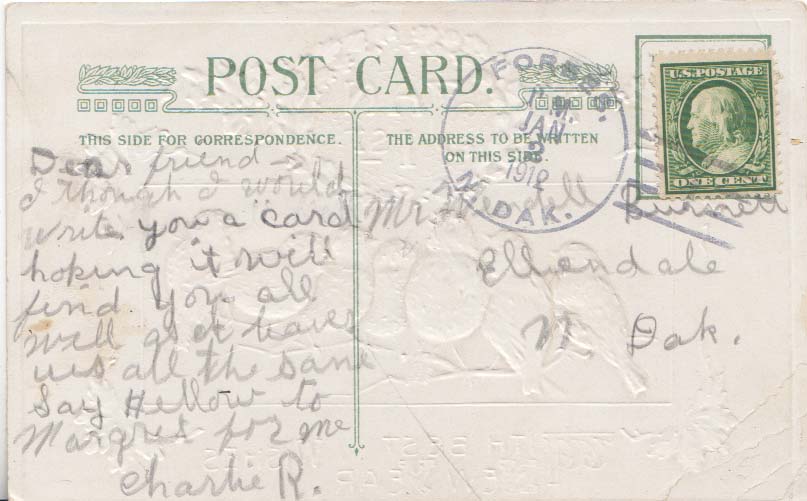 POST CARD.
THIS SIDE FOR CORRESPONDENCE.
THE ADDRESS TO BE WRITTEN
ON THIS SIDE.
U.S. POSTAGE
ONE CENT
JAN
1912
N. DAK.
Dear friend
I though I would
write you a card
hoping it will
find you all
well as it leaves
us all the same
Say Hellow to
Margret for me
Charlie R.
Mr Burnett
Ellendale
N. Dak.